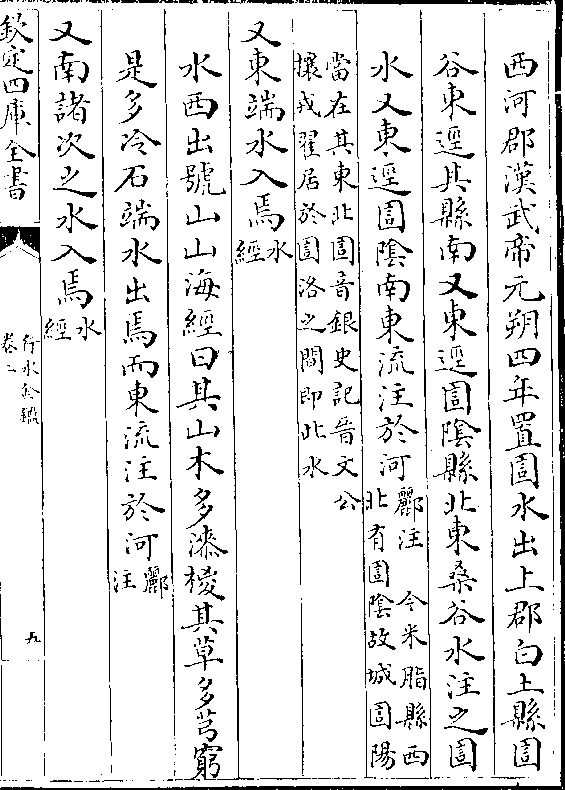 西河郡漢武帝元朔四年置圁水出上郡白土縣圁
谷東逕其縣南又東逕圁陰縣北東桑谷水注之圁
水又東逕圁陰南東流注於河
酈注　今米脂縣西
北有圁陰故城圁陽
當在其東北圁音銀史記晉文公
攘戎翟居於圁洛之間即此水
又東端水入焉
水
經
水西出號山山海經曰其山木多漆椶其草多芎窮
是多泠石端水出焉而東流注於河
酈
注
又南諸次之水入焉
水
經
欽定四庫全書
行水金鑑
卷一
九